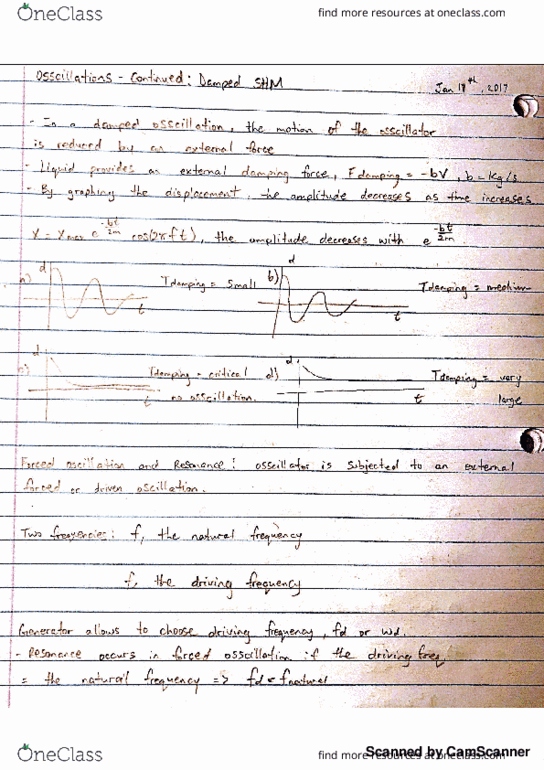 OneClass
find more resources at oneclass.com
Osscillations - Continued: Damped SHM
Jan 18th, 2017
- In a damped osscillation, the motion of the osscillator
is reduced by an external force
- Liquid provides an external damping force, Fdamping = -bV, b = kg/s
- By graphing the displacement, the amplitude decreases as time increases
X = Xmax e^(-bt/2m) cos(2πft), the amplitude decreases with e^(-bt/2m)
a) d t Tdamping = small b) d t Tdamping = medium
c) d t Tdamping = critical d) d t Tdamping = very
no osscillation. large
Forced oscillation and Resonance: osscillator is subjected to an external
forced or driven oscillation.
Two frequencies: f, the natural frequency
f, the driving frequency
Generator allows to choose driving frequency, fd or wd.
- Resonance occurs in forced osscillation if the driving freq
= the natural frequency => fd = fnatural
OneClass
find more resources at oneclass.com
Scanned by CamScanner